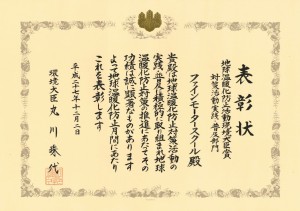 表彰状
地球温暖化防止活動環境大臣賞
対策活動実践・普及部門
ファインモータースクール殿
貴殿は地球温暖化防止対策活動の
実践・普及に積極的に取り組まれ地球
温暖化防止対策の推進にあたてその
功績は誠に顕著なものがあります
よって地球温暖化防止月間にあたり
これを表彰します
平成二十七年十二月二日
環境大臣 丸川珠代